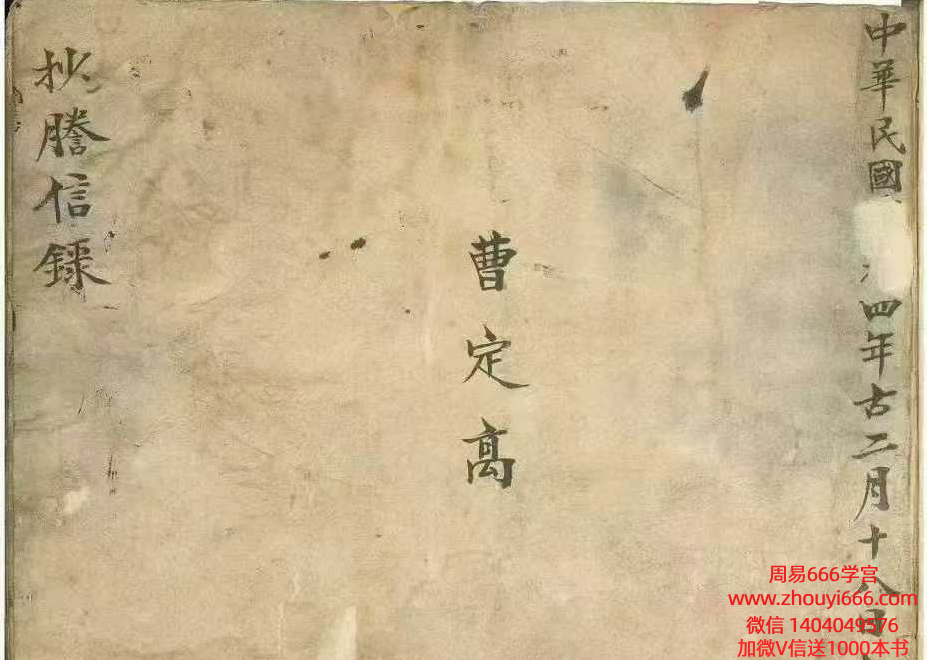 中華民國
四年古二月十八日
曹定高
抄謄信錄
周易666学宫
www.zhouyi666.com
微信 1404049576
加微V信送1000本书